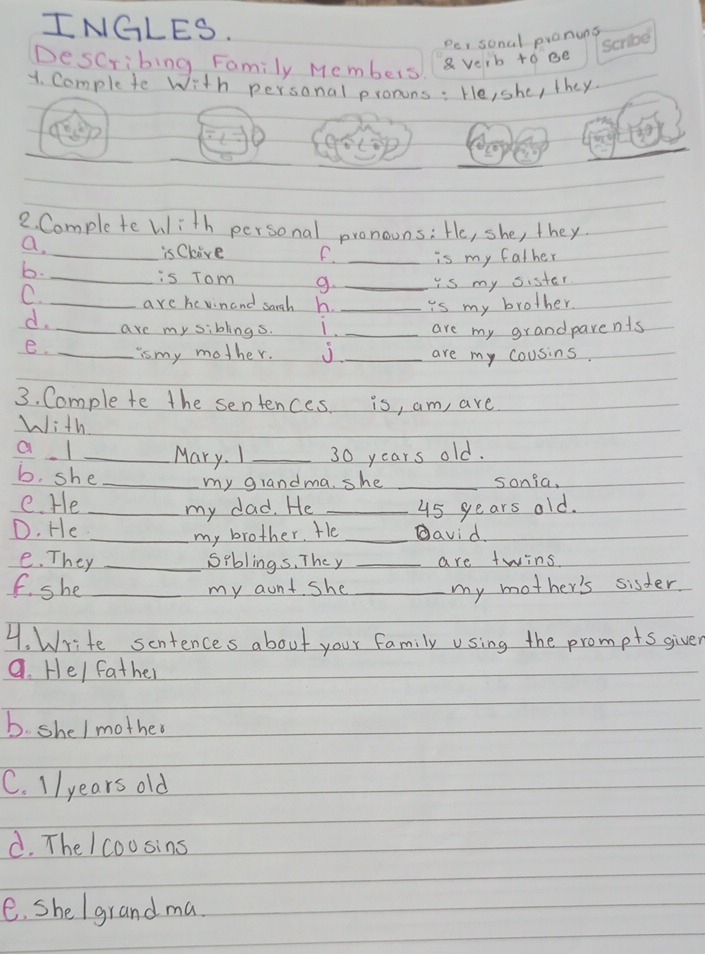 INGLES.
Personal pronuns
& verb to Be
Scribe
Describing Family Members.
1. Complete With personal pronuns: He, she, they.
2. Complete With personal pronouns: He, she, they.
a. ______ is Clive f. ______ is my father
b. ______ is Tom g. ______ is my sister
C. ______ are kevin and sarah h. ______ is my brother.
d. ______ are my siblings. i. ______ are my grandparents
e. ______ is my mother. j ______ are my cousins.
3. Complete the sentences is, am, are
With
a. I ______ Mary. I ______ 30 years old.
b. she ______ my grandma. she ______ sonia.
c. He ______ my dad. He ______ 45 years old.
D. He ______ my brother. He ______ David.
e. They ______ siblings. They ______ are twins.
f. she ______ my aunt. She ______ my mother's sister.
4. Write sentences about your family using the prompts given
a. He/ father
b. she/ mother
C. I/ years old
d. The/ cousins
e. she/ grandma.